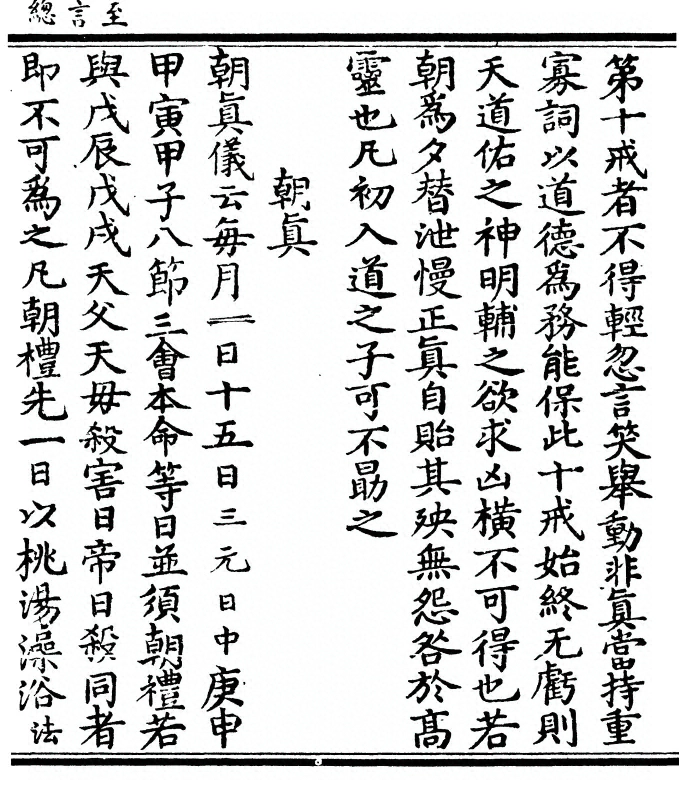 至言總
第十戒者不得輕忽言笑舉動非真當持重
寡詞以道德為務能保此十戒始終无虧則
天道佑之神明輔之欲求凶橫不可得也若
朝為夕替泄慢正真自貽其殃無怨咎於高
靈也凡初入道之子可不勗之
朝真
朝真儀云每月一日十五日三元日中庚申
甲寅甲子八節三會本命等日並須朝禮若
與戊辰戊戌天父天母殺害日帝日殺同者
即不可為之凡朝禮先一日以桃湯澡浴法